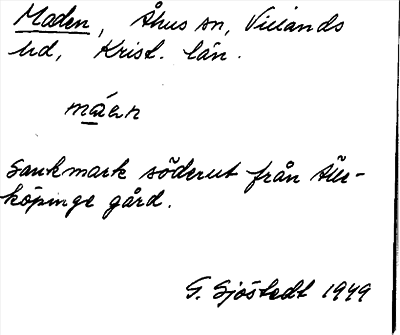 Maden, Åhus sn, Villands
hd, Krist. län.
máen
Sankmark söderut från
köpinge gård.
G. Sjöstedt 1949